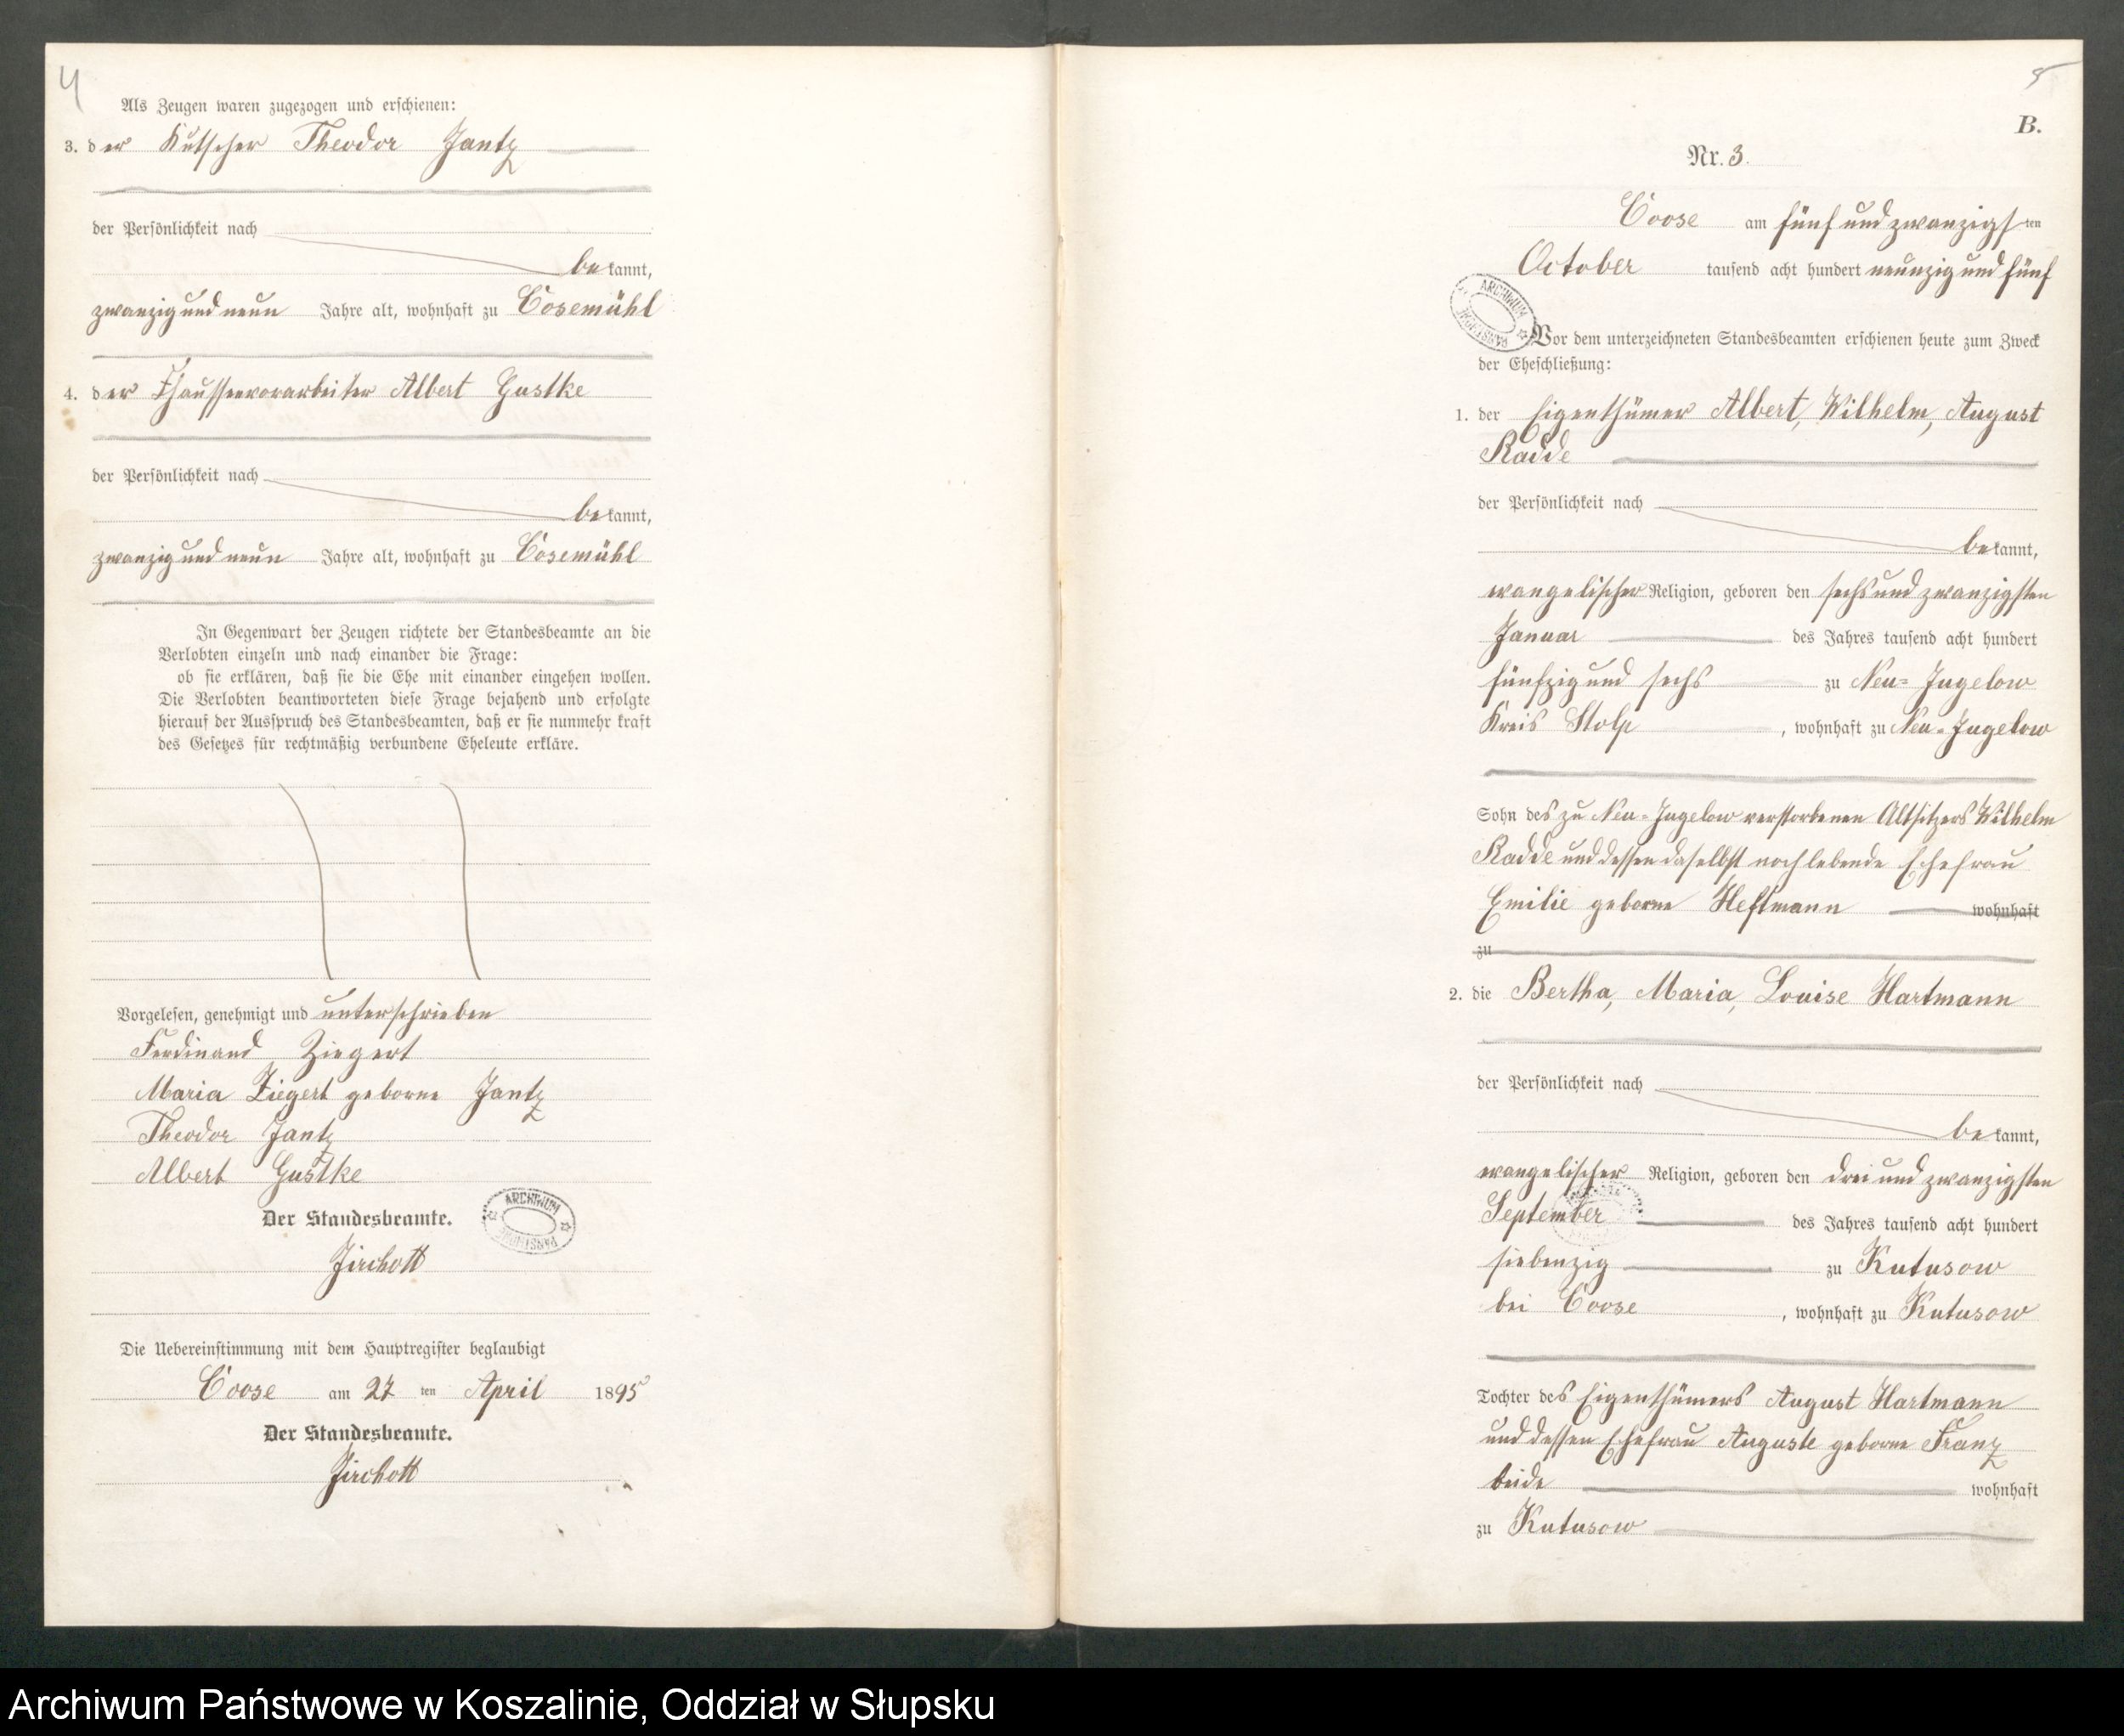 4
Als Zeugen waren zugezogen und erschienen:
3. der Kutscher Theodor Jantz
der Persönlichkeit nach
bekannt,
zwanzig und neun Jahre alt, wohnhaft zu Cosemühl
4. der Chausseevorarbeiter Albert Gustke
der Persönlichkeit nach
bekannt,
zwanzig und neun Jahre alt, wohnhaft zu Cosemühl
In Gegenwart der Zeugen richtete der Standesbeamte an die
Verlobten einzeln und nach einander die Frage:
ob sie erklären, daß sie die Ehe mit einander eingehen wollen.
Die Verlobten beantworteten diese Frage bejahend und erfolgte
hierauf der Ausspruch des Standesbeamten, daß er sie nunmehr kraft
des Gesetzes für rechtmäßig verbundene Eheleute erkläre.
Vorgelesen, genehmigt und unterschrieben
Ferdinand Ziegert
Maria Ziegert geborne Jantz
Theodor Jantz
Albert Gustke
Der Standesbeamte.
ARCHIWUM PAŃSTWOWE
Jirchott
Die Uebereinstimmung mit dem Hauptregister beglaubigt
Coose am 27 ten April 1895
Der Standesbeamte.
Jirchott
5
B.
Nr. 3.
Coose am fünf und zwanzigsten
October tausend acht hundert neunzig und fünf
ARCHIWUM PAŃSTWOWE
Vor dem unterzeichneten Standesbeamten erschienen heute zum Zweck
der Eheschließung:
1. der Eigenthümer Albert, Wilhelm, August
Radde
der Persönlichkeit nach
bekannt,
evangelischer Religion, geboren den sechs und zwanzigsten
Januar des Jahres tausend acht hundert
fünfzig und sechs zu Neu-Jugelow
Kreis Stolp, wohnhaft zu Neu-Jugelow
Sohn des zu Neu-Jugelow verstorbenen Altsitzers Wilhelm
Radde und dessen daselbst noch lebende Ehefrau
Emilie geborne Heftmann wohnhaft
zu
2. die Bertha, Maria, Louise Hartmann
der Persönlichkeit nach
bekannt,
evangelischer Religion, geboren den drei und zwanzigsten
September des Jahres tausend acht hundert
siebenzig zu Kutusow
bei Coose, wohnhaft zu Kutusow
Tochter des Eigenthümers August Hartmann
und dessen Ehefrau Auguste geborne Franz
beide wohnhaft
zu Kutusow
Archiwum Państwowe w Koszalinie, Oddział w Słupsku